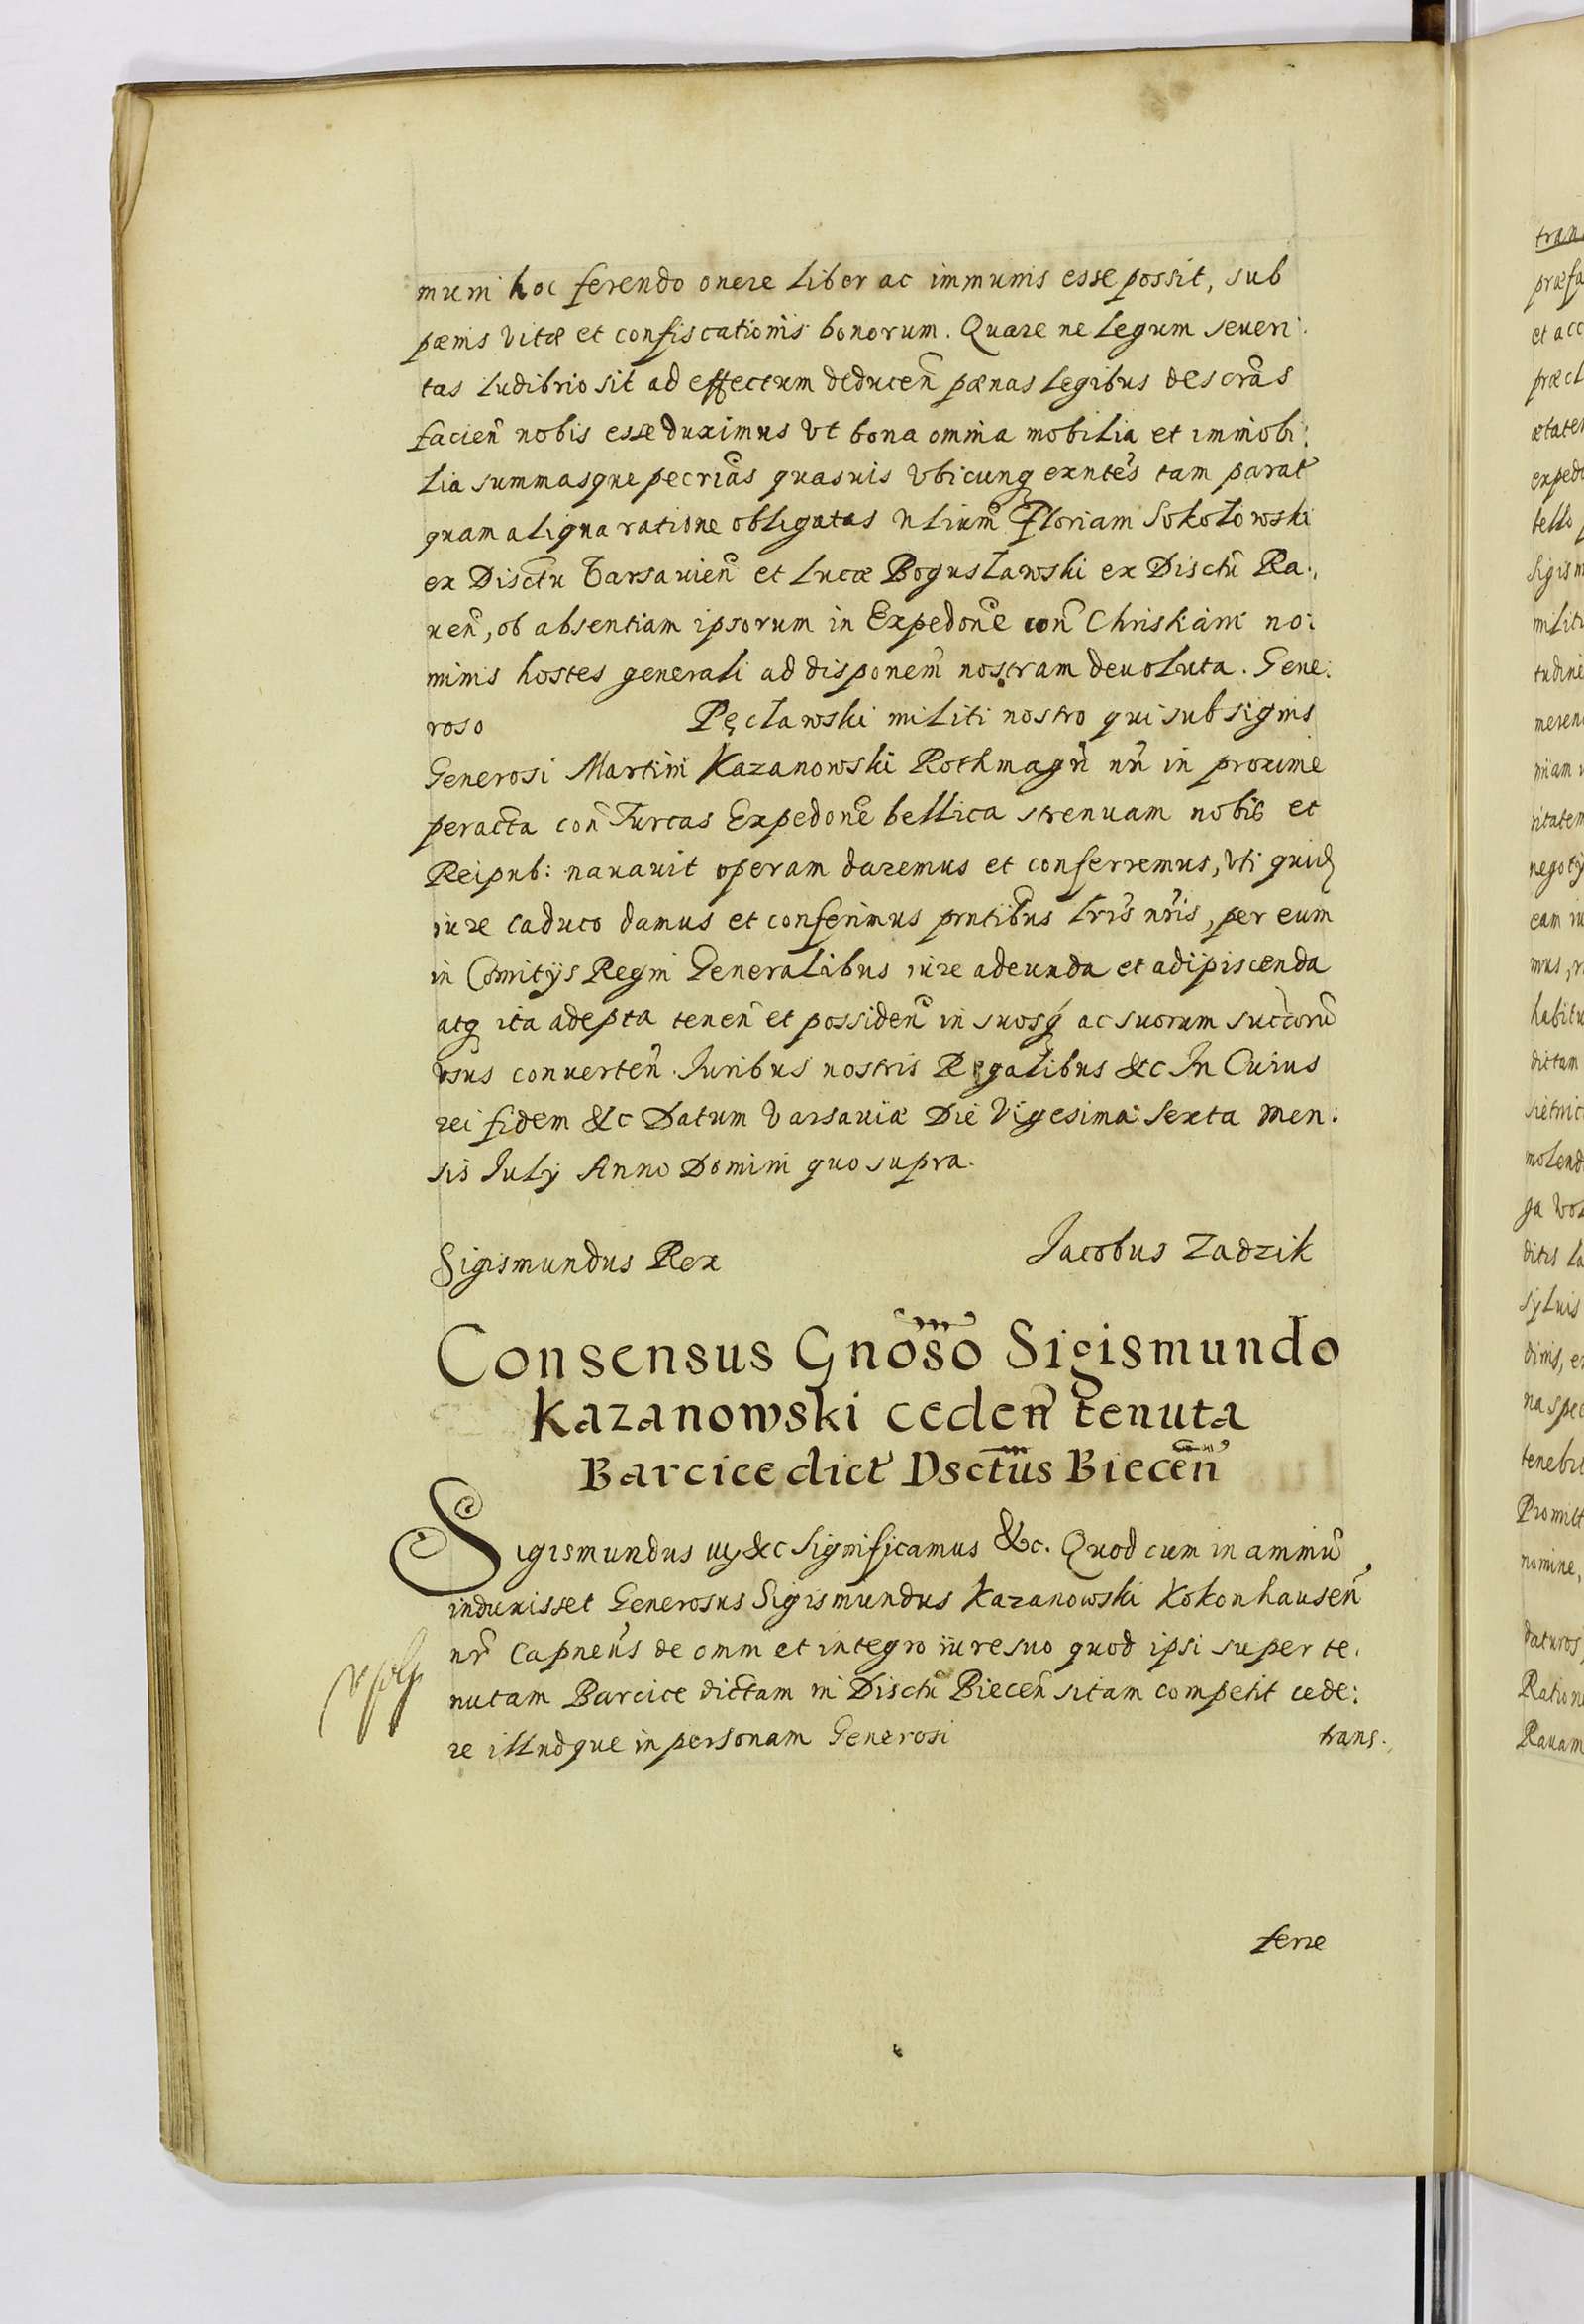 mum hoc ferendo onere liber ac immunis esse possit, sub
pænis vitæ et confiscationis bonorum. Quare ne legum seueri:
tas ludibrio sit ad effectum deducen̄ pænas legibus descrās
facien̄ nobis esse duximus vt bona omnia mobilia et immobi:
lia summasque pecriās quasuis vbicunq exntēs tam parat
quam aliqua ratione obligatas nlium̄ Floriani Sokołowski
ex Disctu Varsauien̄ et Lucæ Bogusławski ex Disctū Ra:
uen̄, ob absentiam ipsorum in Expedonē con̄ Christiani no:
minis hostes generali ad disponem̄ nostram deuoluta. Gene:
roso Pęcławski militi nostro qui sub signis
Generosi Martini Kazanowski Rothmagrī nrī in proxime
peracta con̄ Turcas Expedonē bellica strenuam nobis et
Reipub: nauauit operam daremus et conferremus, vti quid
iure caduco damus et conferimus prntibūs lrīs nrīs, per eum
in Comitijs Regni Generalibus iure adeunda et adipiscenda
atq ita adepta tenen̄ et possiden̄ in suosq ac suorum succorū
vsus conuerten̄. Iuribus nostris Regalibus &c In Cuius
rei fidem &c Datum Varsauiæ Die Vigesima Sexta Men:
sis Iulij Anno Domini quo supra.
Sigismundus Rex
Jacobus Zadzik
Consensus Gnōso Sigismundo
Kazanowski ceden̄ tenuta
Barcice dict Dsctūs Biecēn
Sigismundus iij &c Significamus &c. Quod cum in animū
induxisset Generosus Sigismundus Kazanowski Kokonhausen̄
nr̄ Capnēus de omni et integro iure suo quod ipsi super te:
nutam Barcice dictam in Disctū Biecen̄ sitam competit cede:
re illudque in personam Generosi trans:
ferre